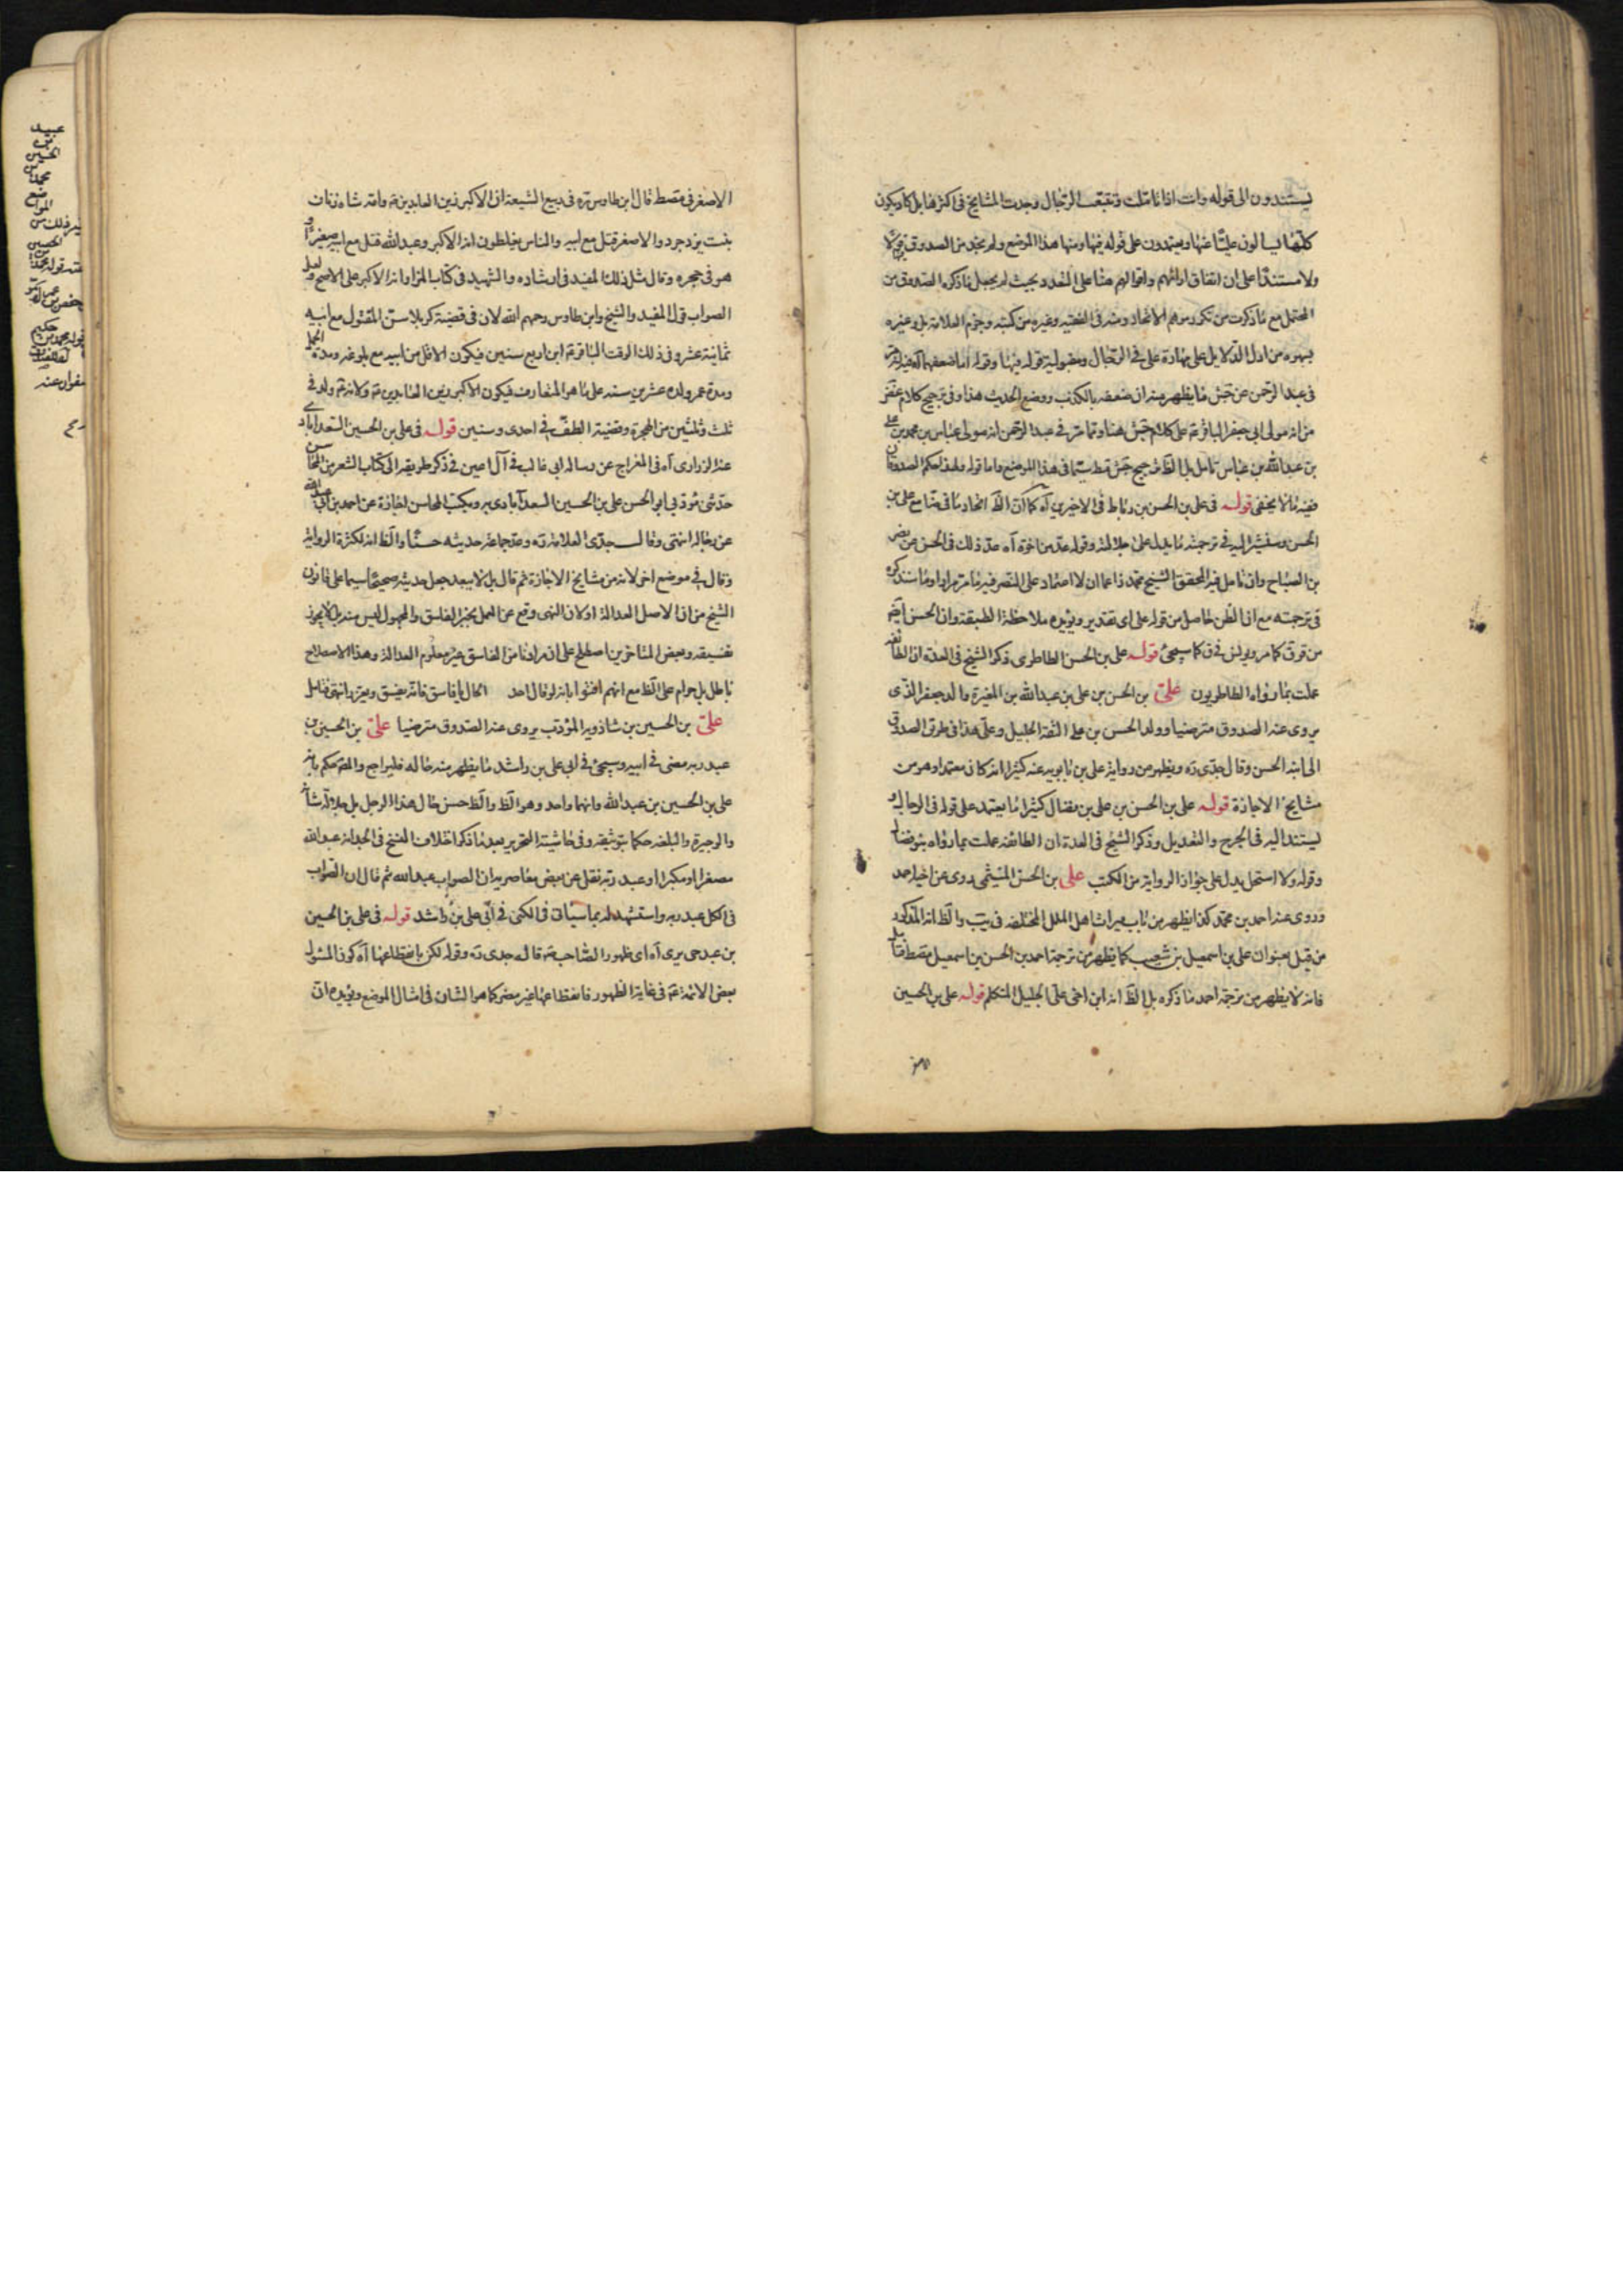 يستندون الى قوله وانت اذا تاملت وتتبعت الرجال وجدت المشايخ في اكثرها بل كاد يكون
كلها يسالون عليا عنها ويعتمدون على قوله فيها ومنها هذا الموضع ولم نجد من الصدوق
ولا مستندا على ان اتفاق ارائهم واقوالهم هنا على التعدد بحيث لم يجعل ما ذكره الصدوق من
المحتمل مع ما ذكرت من تكرر منه في الفقيه وغيره من كتبه وجزم العلامة بل وغيره
من ادل الدلايل على مهارة على في الرجال ومقبولية قوله فيها وقوله اما ضعفهما
في عبد الرحمن عن جش ما يظهر منه ان ضعفه بالكذب ووضع الحديث هذا وفي ترجيح كلام
من انه مولى ابي جعفر الباقر ع على كلام جش هنا وما مر في عبد الرحمن انه مولى عباس بن محمد بن على
بن عبد الله بن عباس تامل بل الظاهر ترجيح جش قط سيما في هذا الموضع واما قوله ولهذا حكم الصدوق
ففيه ما لا يخفى قوله في على بن الحسن بن رباط في الاخيرين آه كما ان الظ اتحاد ما في
الحسن وسنشير اليه في ترجمته ما يدل على جلالته وقوله عد من اخوته آه عد ذلك في الحسن عن نصر
بن الصباح وان تامل فيه المحقق الشيخ محمد زاعما ان لا اعتماد على النصر فيه ما مر مرارا وما سنذكره
في ترجمته مع ان الظن حاصل من قوله على اى تقدير ويؤيده ملاحظة الطبقة وان الحسن ايضا
من ق كما مر ويونس في ق كما سيجئ قوله على بن الحسن الطاطرى ذكر الشيخ في العدة ان الطائفة
عملت بما رواه الطاطريون على بن الحسن بن على بن عبد الله بن المغيرة والد جعفر الذى
يروى عنه الصدوق مترضيا وولد الحسن بن على الثقة الجليل وعلى هذا في طريق الصدوق
الى ابيه الحسن وقال جدى ره ويظهر من رواية على بن بابويه عنه كثيرا انه كان معتمدا وهو من
مشايخ الاجازة قوله على بن الحسن بن على بن فضال كثيرا ما يعتمد على قوله في الرجال و
يستند اليه في الجرح والتعديل وذكر الشيخ في العدة ان الطائفة عملت بما رواه بنو فضال
وقوله ولا استحل يدل على جواز الرواية من الكتب على بن الحسن الميثمى روى عن اخيه احمد
وروى عنه احمد بن محمد كذا يظهر من باب ميراث اهل الملل المختلفة في يب والظ انه المذكور
من قبل بعنوان على بن اسمعيل بن شعيب كما يظهر من ترجمة احمد بن الحسن بن اسمعيل
فانه لا يظهر من ترجمة احمد ما ذكره بل الظ انه ابن اخى على الجليل المتكلم قوله على بن الحسين
الاصغر
الاصغر في مصط قال ابن طاوس ره في ربيع الشيعة ان الاكبر زين العابدين ع وامه شاه زنان
بنت يزدجرد والاصغر قتل مع ابيه والناس يغلطون انه الاكبر وعبد الله قتل مع ابيه صغيرا و
هو في حجره وقال مثل ذلك المفيد في ارشاده والشهيد في كتاب المزار انه الاكبر على الاصح ولعل
الصواب قول المفيد والشيخ وابن طاوس رحمهم الله لان في قضية كربلا سن المقتول مع ابيه
ثمانية عشر وفي ذلك الوقت الباقر ع ابن اربع سنين فيكون الاقل من ابيه مع بلوغه ومدة الحمل
ومدة عمر ولده عشرين سنه على ما هو المتعارف فيكون الاكبر زين العابدين ع ولانه ع ولد في
ثلث وثلثين من الهجرة وقضية الطف في احدى وستين قوله في على بن الحسين السعدابادى
عنه الزرارى آه في المعراج عن رسالة ابى غالب في آل اعين في ذكر طريقه الى كتاب الشعر من المحاسن
حدثنى مؤدبى ابو الحسن على بن الحسين السعدآبادى به وبكتب المحاسن اجازة عن احمد بن ابى عبد الله
عن رجاله انتهى وقال جدى العلامة ره وعد جماعة حديثه حسنا والظ انه لكثرة الرواية
وقال في موضع اخر لانه من مشايخ الاجازة ثم قال بل لا يبعد جعل حديثه صحيحا سيما على قانون
الشيخ من ان الاصل العدالة او كان النهى وقع عن العمل بخبر الفاسق والمجهول ليس منه بل لا يجوز
تفسيقه وبعض المتاخرين اصطلح على ان مرادنا من الفاسق غير معلوم العدالة وهذا الاصطلاح
باطل بل حرام على الظ مع انهم افتوا بانه لو قال احد الحال يا فاسق فانه يفسق ويعزر انتهى فتامل
على بن الحسين بن شاذويه المؤدب يروى عنه الصدوق مترضيا على بن الحسين بن
عبد ربه مضى في ابيه وسيجئ في ابى على بن راشد ما يظهر منه حاله فليراجع والمص حكم بانه
على بن الحسين بن عبد الله وانهما واحد وهو الظ والظ حسن حال هذا الرجل بل جلالة شانه
والوجيزة والبلغة حكما بتوثيقه وفي حاشية التحرير بعد ما ذكر اختلاف النسخ في الجد انه عبد الله
مصغرا او مكبرا او عبد ربه نقل عن بعض معاصريه ان الصواب عبد الله ثم قال ان الصواب
في الكل عبد ربه واستشهد له بما سياتى في الكنى في ابى على بن راشد قوله في على بن الحسين
بن عبد حى يرى آه اى ظهور الصاحب ع قاله جدى ره وقوله لكن بانقطاعها آه كون المسئول
بعض الائمة ع في غاية الظهور فانقطاعها غير مضر كما هو الشان في امثال الموضع ويؤيده ان
عبيد
بن
الحسين
محمد